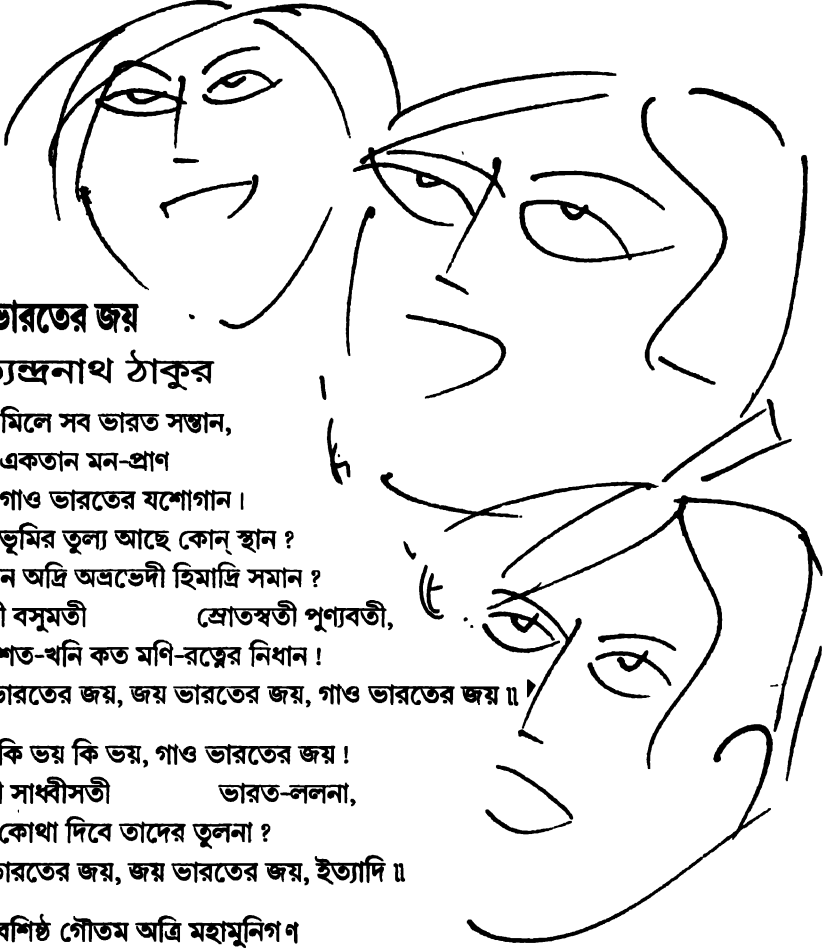 ভারতের জয়
্যেন্দ্রনাথ ঠাকুর
মিলে সব ভারত সন্তান,
একতান মন-প্রাণ
গাও ভারতের যশোগান।
ভূমির তুল্য আছে কোন্ স্থান ?
ন অদ্রি অভ্রভেদী হিমাদ্রি সমান ?
ী বসুমতী স্রোতস্বতী পুণ্যবতী,
শত-খনি কত মণি-রত্নের নিধান !
ভারতের জয়, জয় ভারতের জয়, গাও ভারতের জয় ॥
কি ভয় কি ভয়, গাও ভারতের জয় !
ী সাধ্বীসতী ভারত-ললনা,
কোথা দিবে তাদের তুলনা ?
ভারতের জয়, জয় ভারতের জয়, ইত্যাদি ॥
বশিষ্ঠ গৌতম অত্রি মহামুনিগণ